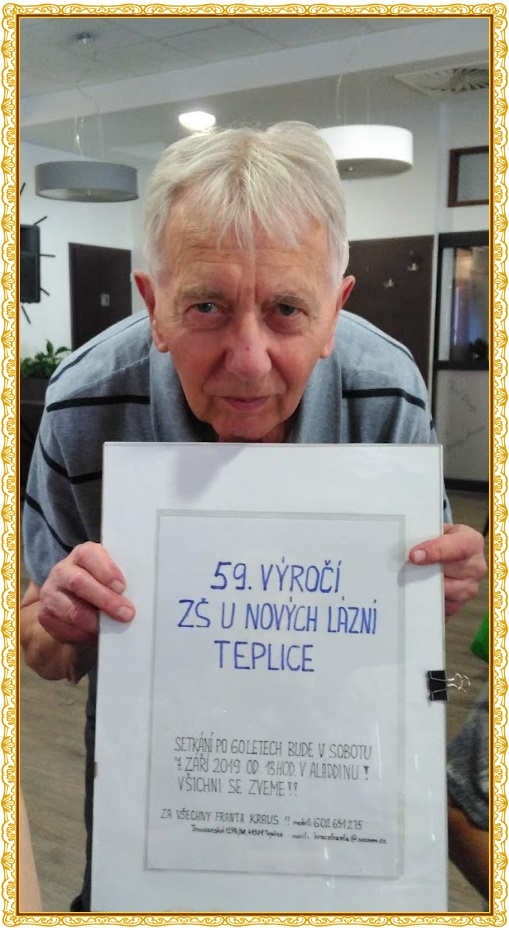 59. VÝROČÍ
ZŠ U NOVÝCH LÁZNÍ
TEPLICE
SETKÁNÍ PO 60 LETECH BUDE V SOBOTU
7. ZÁŘÍ 2019 OD 13 HOD. V ALADDINU !
VŠICHNI SE ZVEME !!
ZA VŠECHNY FRANTA KRAUS !! mobil: 602 651 275
41501 Teplice mail: